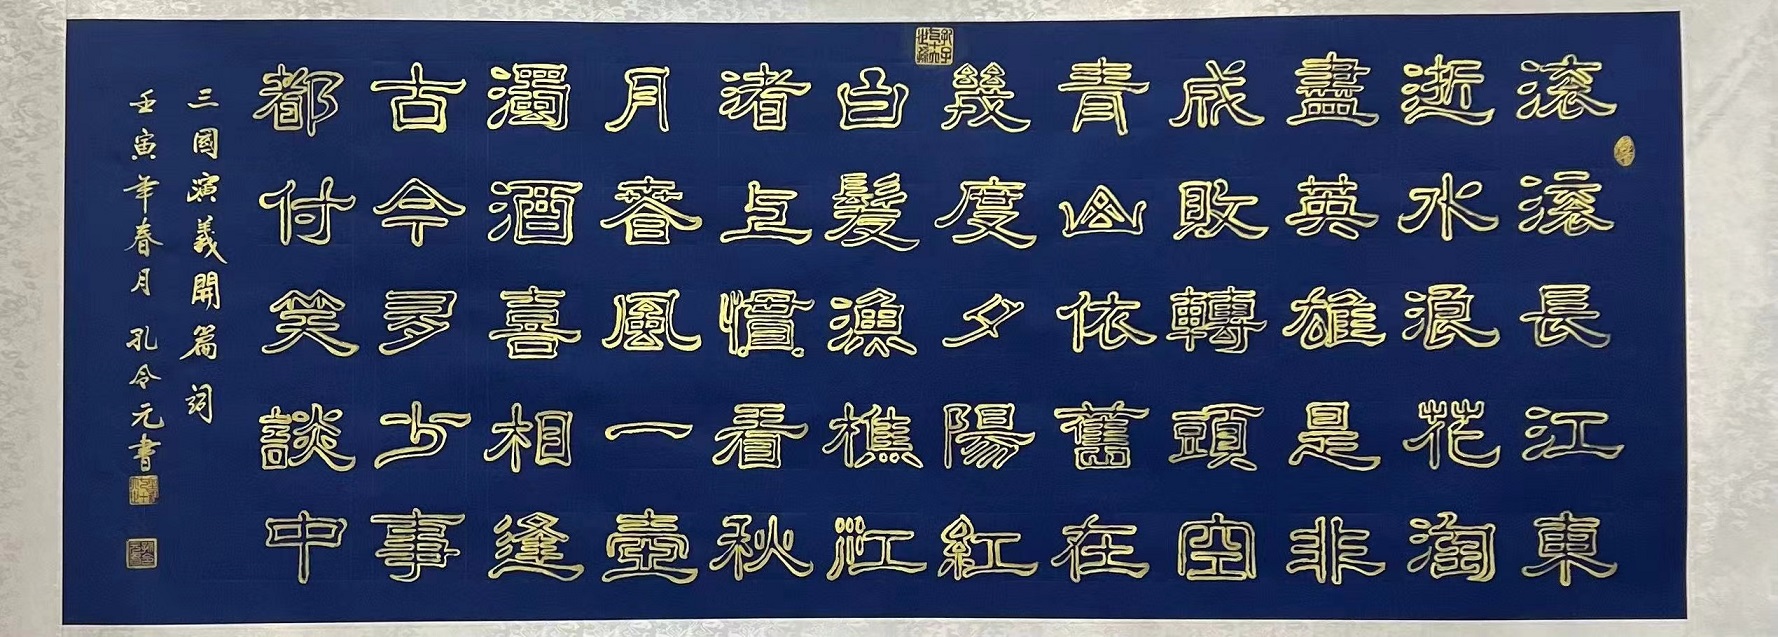 滾滾長江東
逝水浪花淘
盡英雄是非
成敗轉頭空
青山依舊在
幾度夕陽紅
白髮漁樵江
渚上慣看秋
月春風一壺
濁酒喜相逢
古今多少事
都付笑談中
三國演義開篇詞
壬寅年春月孔令元書